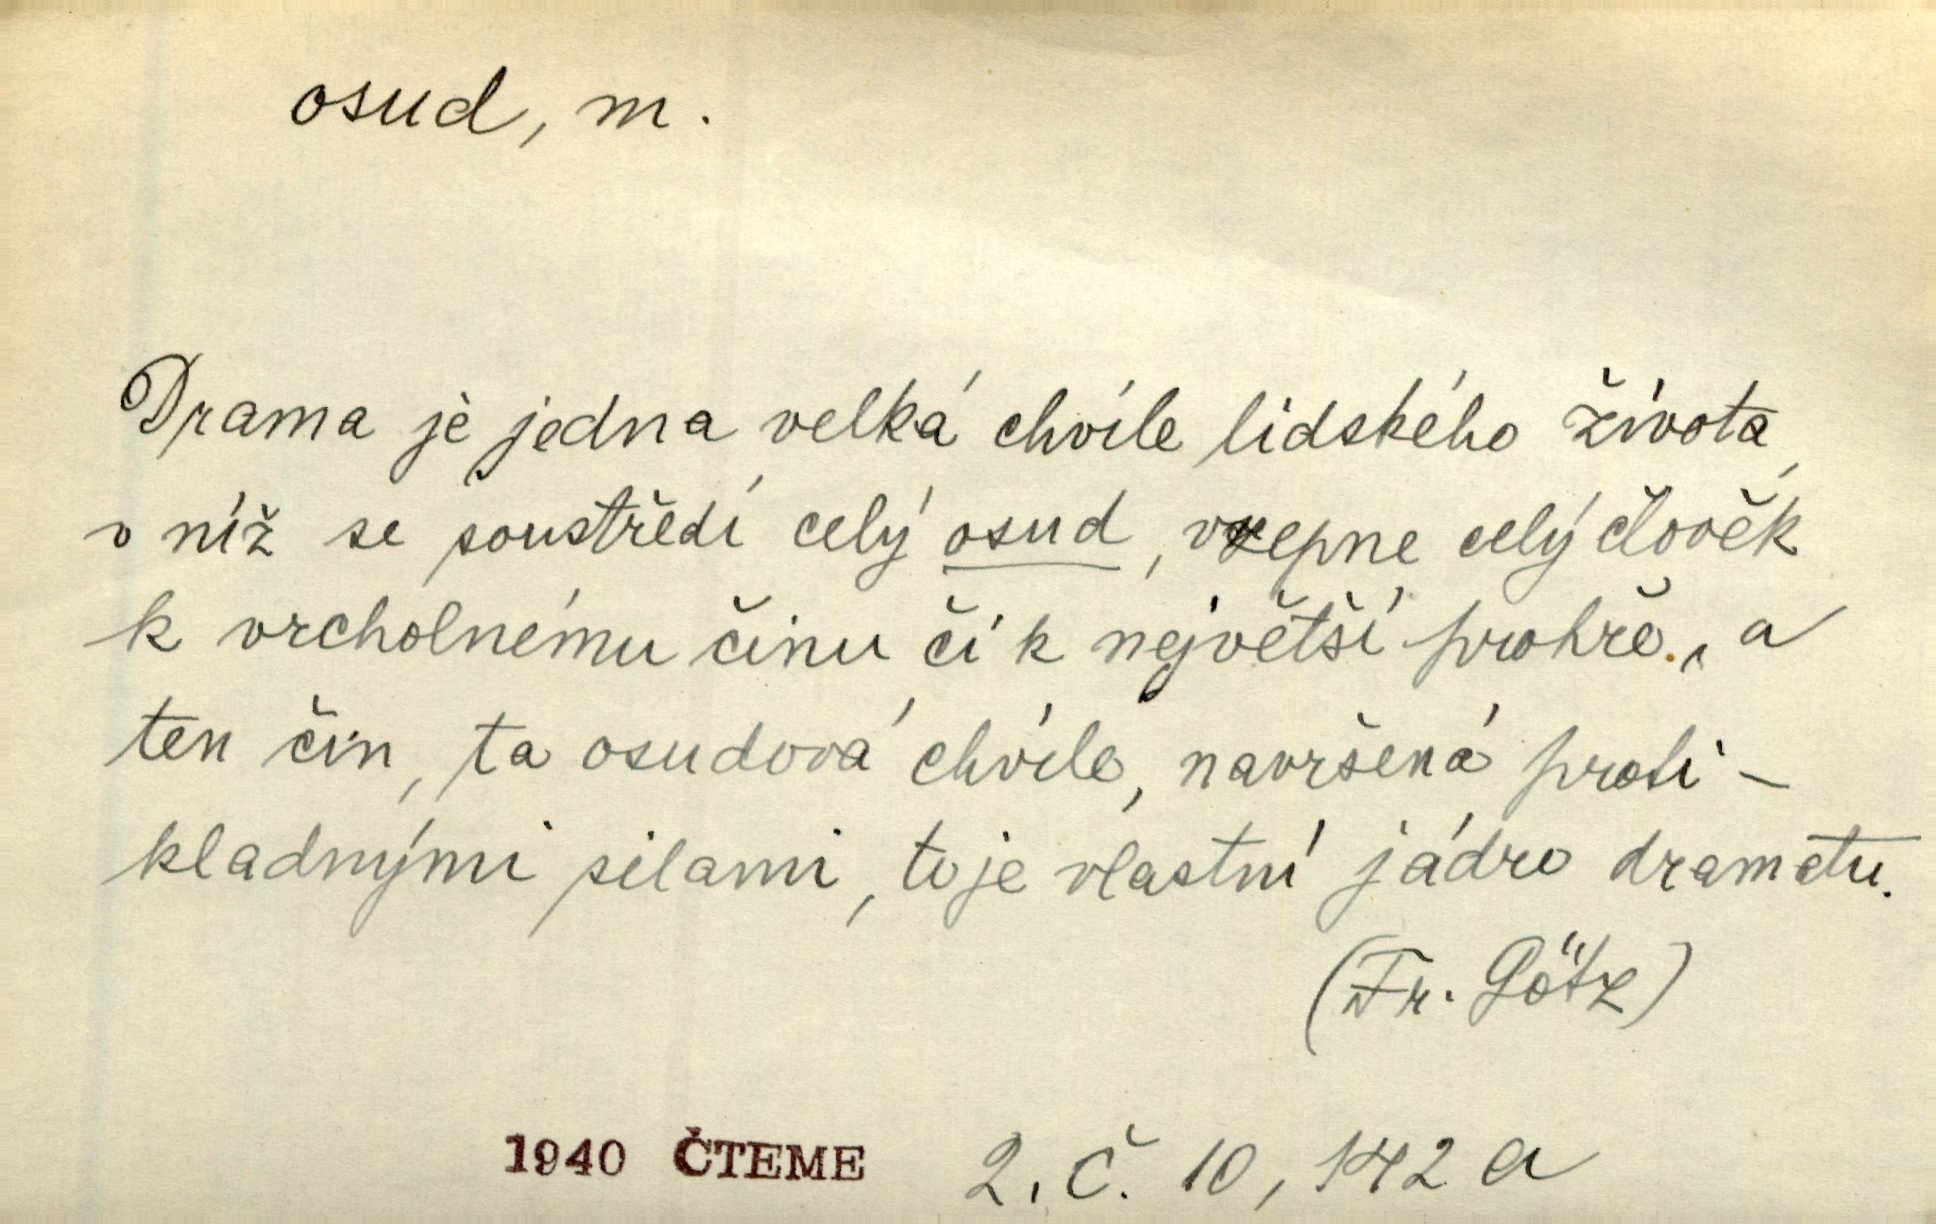 osud, m.
Drama je jedna velká chvíle lidského života,
v níž se soustředí celý osud, vzepne celý člověk
k vrcholnému činu či k největší prohře., a
ten čin, ta osudová chvíle, navršená proti-
kladnými silami, to je vlastní jádro dramatu.
(Fr. Götz)
1940 ČTEME 2, č. 10, 142 a